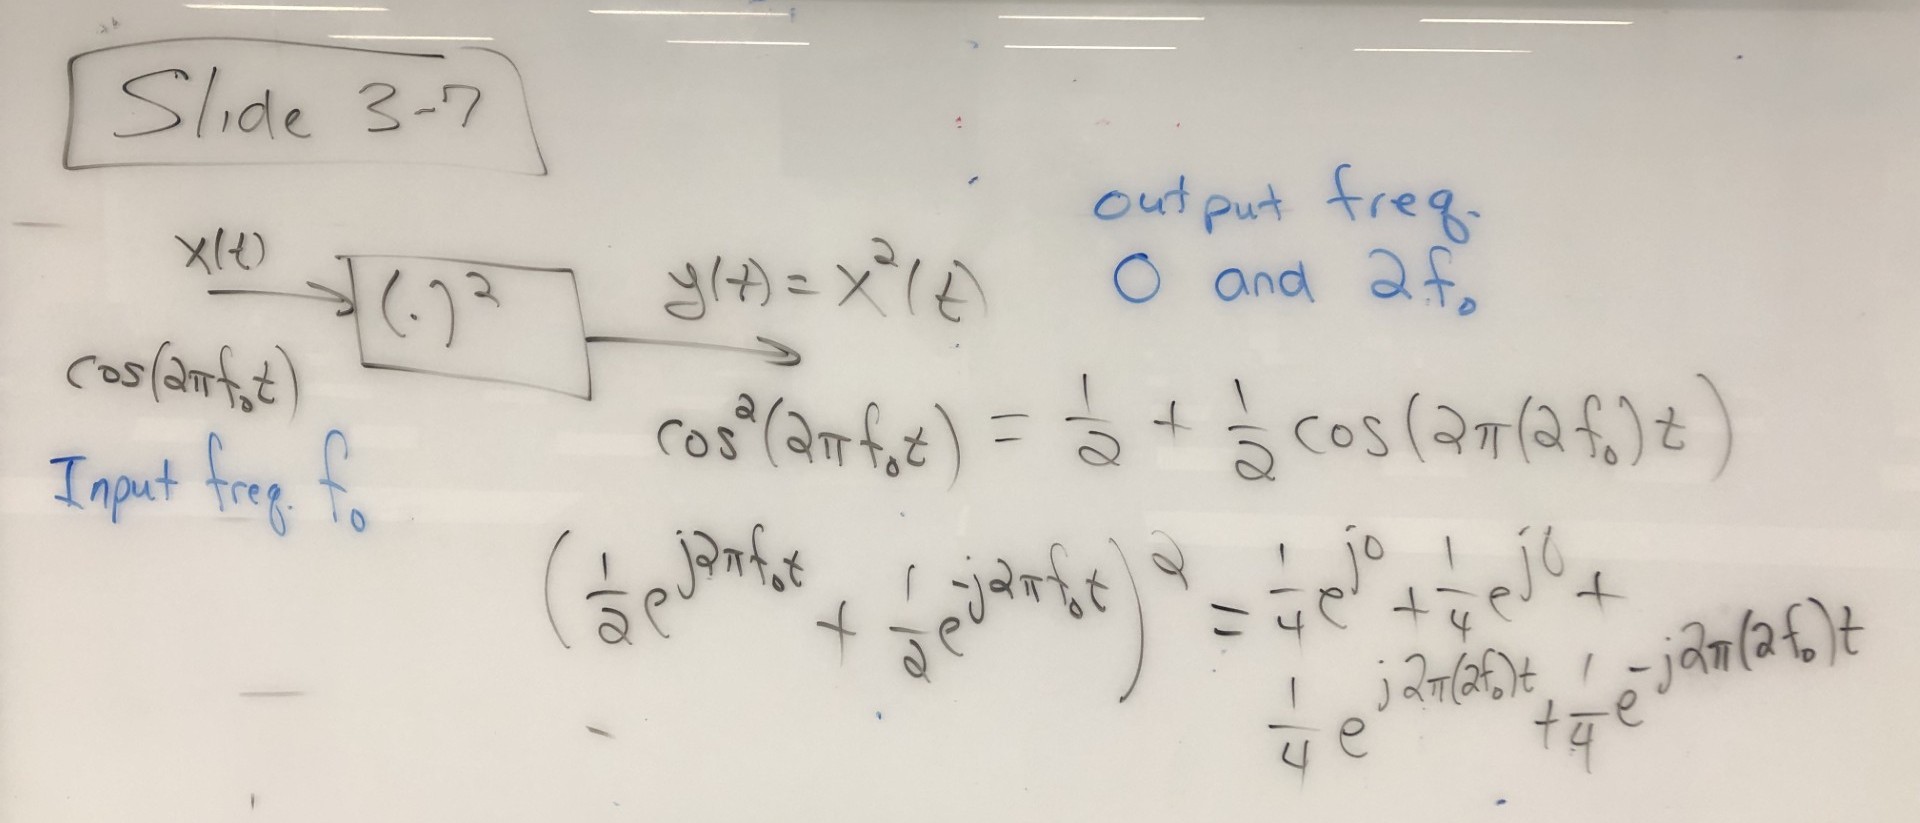 Slide 3-7
x(t)
(.)²
y(t) = x²(t)
output freq.
0 and 2f₀
cos(2πf₀t)
Input freq. f₀
cos²(2πf₀t) = 1/2 + 1/2 cos(2π(2f₀)t)
(1/2 e^{j2πf₀t} + 1/2 e^{-j2πf₀t})² = 1/4 e^{j0} + 1/4 e^{j0} +
1/4 e^{j2π(2f₀)t} + 1/4 e^{-j2π(2f₀)t}